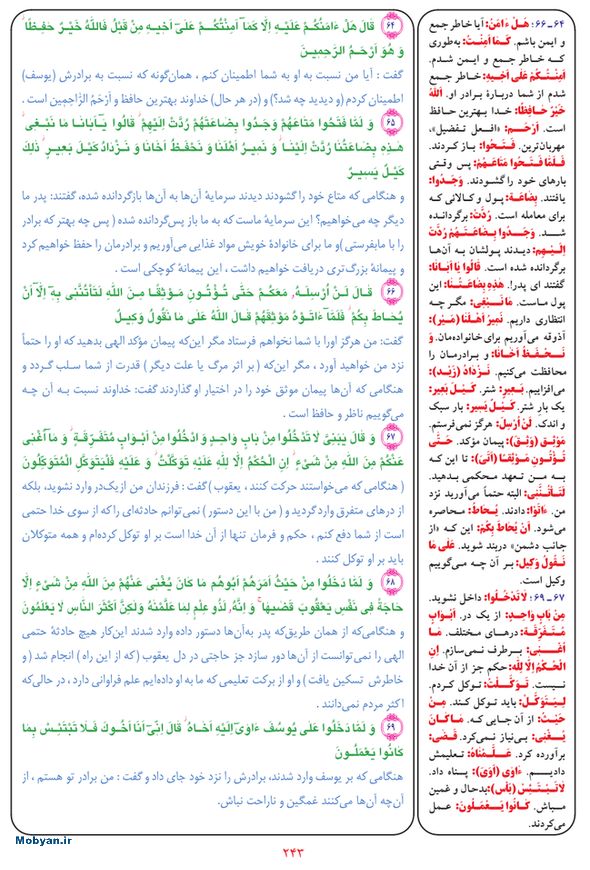 ۶۴ قَالَ هَلْ ءَامَنُکُمْ عَلَیْهِ اِلَّا کَمَآ اَمِنْتُکُمْ عَلَیٓ اَخِیهِ مِنْ قَبْلُ فَاللهُ خَیْرٌ حَفِظًا
وَ هُوَ اَرْحَمُ الرَّحِمِینَ
گفت : آیا من نسبت به او به شما اطمینان کنم ، همان‌گونه که نسبت به برادرش (یوسف)
اطمینان کردم (و دیدید چه شد؟) و (در هر حال) خداوند بهترین حافظ و اَرْحَمُ الرّاحِمِین است .
۶۵ وَ لَمَّا فَتَحُوا مَتَاعَهُمْ وَجَدُوا بِضَاعَتَهُمْ رُدَّتْ اِلَیْهِمْ قَالُوا یَآاَبَانَا مَا نَبْغِی
هَذِهِ بِضَاعَتُنَا رُدَّتْ اِلَیْنَا وَ نَمِیرُ اَهْلَنَا وَ نَحْفَظُ اَخَانَا وَ نَزْدَادُ کَیْلَ بَعِیرٍ ذَلِکَ
کَیْلٌ یَسِیرٌ
و هنگامی که متاع خود را گشودند دیدند سرمایهٔ آن‌ها به آن‌ها بازگردانده شده، گفتند: پدر ما
دیگر چه می‌خواهیم؟ این سرمایهٔ ماست که به ما باز پس‌گردانده شده ( پس چه بهتر که برادر
را با مابفرستی )و ما برای خانوادهٔ خویش مواد غذایی می‌آوریم و برادرمان را حفظ خواهیم کرد
و پیمانهٔ بزرگ‌تری دریافت خواهیم داشت ، این پیمانهٔ کوچکی است .
۶۶ قَالَ لَنْ اُرْسِلَهُ مَعَکُمْ حَتَّی تُؤْتُونِ مَوْثِقًا مِنَ اللهِ لَتَأْتُنَّنِی بِهِ اِلَّآ اَنْ
یُحَاطَ بِکُمْ فَلَمَّآ ءَاتَوْهُ مَوْثِقَهُمْ قَالَ اللهُ عَلَی مَا نَقُولُ وَکِیلٌ
گفت: من هرگز اورا با شما نخواهم فرستاد مگر این‌که پیمان مؤکد الهی بدهید که او را حتماً
نزد من خواهید آورد ، مگر این‌که ( بر اثر مرگ یا علت دیگر ) قدرت از شما سلب گردد و
هنگامی که آن‌ها پیمان موثق خود را در اختیار او گذاردند گفت: خداوند نسبت به آن چه
می‌گوییم ناظر و حافظ است .
۶۷ وَ قَالَ یَبَنِیَّ لَا تَدْخُلُوا مِنْ بَابٍ وَاحِدٍ وَ ادْخُلُوا مِنْ اَبْوَابٍ مُتَفَرِّقَةٍ وَ مَآ اُغْنِی
عَنْکُمْ مِنَ اللهِ مِنْ شَیْءٍ اِنِ الْحُکْمُ اِلَّا لِلهِ عَلَیْهِ تَوَکَّلْتُ وَ عَلَیْهِ فَلْیَتَوَکَّلِ الْمُتَوَکِّلُونَ
(هنگامی که می‌خواستند حرکت کنند ، یعقوب ) گفت : فرزندان من ازیک‌در وارد نشوید، بلکه
از درهای متفرق واردگردید ( و من با این دستور ) نمی‌توانم حادثه‌ای را که از سوی خدا حتمی
است از شما دفع کنم ، حکم و فرمان تنها از آن خدا است بر او توکل کرده‌ام و همه متوکلان
باید بر او توکل کنند .
۶۸ وَ لَمَّا دَخَلُوا مِنْ حَیْثُ اَمَرَهُمْ اَبُوهُمْ مَا کَانَ یُغْنِی عَنْهُمْ مِنَ اللهِ مِنْ شَیْءٍ اِلَّا
حَاجَةً فِی نَفْسِ یَعْقُوبَ قَضَیهَا وَ اِنَّهُ لَذُو عِلْمٍ لِمَا عَلَّمْنَهُ وَلَکِنَّ اَکْثَرَ النَّاسِ لَا یَعْلَمُونَ
و هنگامی‌که از همان طریق‌که پدر به‌آن‌ها دستور داده وارد شدند این‌کار هیچ حادثهٔ حتمی
الهی را نمی‌توانست از آن‌ها دور سازد جز حاجتی در دل یعقوب (که از این راه ) انجام شد ( و
خاطرش تسکین یافت ) و او از برکت تعلیمی که ما به او داده‌ایم علم فراوانی دارد ، در حالی‌که
اکثر مردم نمی‌دانند .
۶۹ وَ لَمَّا دَخَلُوا عَلَی یُوسُفَ ءَاوَیٓ اِلَیْهِ اَخَاهُ قَالَ اِنِّیٓ اَنَا اَخُوکَ فَلَا تَبْتَئِسْ بِمَا
کَانُوا یَعْمَلُونَ
هنگامی که بر یوسف وارد شدند، برادرش را نزد خود جای داد و گفت : من برادر تو هستم ، از
آن‌چه آن‌ها می‌کنند غمگین و ناراحت نباش.
۶۴ـ۶۶: هَلْ ءَامَنُ: آیا خاطر جمع
و ایمن باشم. کَمَآ اَمِنْتُ: به‌طوری
که خاطر جمع و ایمن شدم.
اَمِنْتُکُمْ عَلَیٓ اَخِیهِ: خاطر جمع
شدم از شما دربارهٔ برادر او. اَللهُ
خَیْرٌ حَافِظًا: خدا بهترین حافظ
است. اَرْحَم: «افـعل تـفضیل»،
مهربان‌ترین. فَتَحُوا: باز کردند.
فَلَمَّا فَتَحُوا مَتَاعَهُمْ: پس وقتی
بارهای خود را گشودند. وَجَدُوا:
یافتند. بِضَاعَة: پول و کالائی که
برای معامله است. رُدَّتْ: برگردانده
شد. وَجَدُوا بِضَاعَتَهُمْ رُدَّتْ
اِلَیْهِمْ: دیدند پولشان به آن‌ها
برگردانده شده است. قَالُوا یَا اَبَانَا:
گفتند ای پدر!. هَذِهِ بِضَاعَتُنَا: این
پول ماست. مَا نَبْغِی: مگر چه
انتظاری داریم. نَمِیرُ اَهْلَنَا (مَیْر):
آذوقه می‌آوریم برای‌خانواده‌مان. وَ
نَحْفَظُ اَخَانَا: و برادرمان را
محافظت می‌کنیم. نَزْدَادُ (زَیْد):
می‌افزاییم. بَعِیر: شتر. کَیْلَ بَعِیر:
یک بارِ شتر. کَیْلٌ یَسِیر: بار سبک
و اندک. لَنْ اُرْسِلَ: هرگز نمی‌فرستم.
مَوْثِق (وَثِقَ): پیمان مؤکد. حَتَّی
تُؤْتُونِ مَوْثِقًا (اَتَیَ): تا این که
به من تعهد محکمی بدهید.
لَتَأْتُنَّنِی: البته حتماً می‌آورید نزد
من. ءَاتَوْا: دادند. یُحَاطُ: محاصره
می‌شود. اَنْ یُحَاطَ بِکُمْ: این که «از
جانب دشمن» دربند شوید. عَلَی مَا
نَقُولُ وَکِیل: بر آن چه می‌گوییم
وکیل است.
۶۷ـ۶۹: لَا تَدْخُلُوا: داخل نشوید.
مِنْ بَابٍ وَاحِدٍ: از یک در. اَبْوَابٍ
مُتَفَرِّقَة: درهای مختلف. مَا
اُغْنِی: برطرف نمی‌سازم. اِنِ
الْحُکْمُ اِلَّا لِلهِ: حکم جز از آن خدا
نیست. تَوَکَّلْتُ: توکل کردم.
لِیَتَوَکَّلْ: باید توکل کند. مِنْ
حَیْثُ: از آن جایی که. مَا کَانَ
یُغْنِی: بی‌نیاز نمی‌کرد. قَضَی:
برآورده کرد. عَلَّمْنَاهُ: تعلیمش
دادیم. ءَاوَی (اَوَی): پناه داد.
لَا تَبْتَئِسْ (بَأْس): بدحال و غمین
مباش. کَانُوا یَعْمَلُونَ: عمل
می‌کردند.
Mobyan.ir
۲۴۳